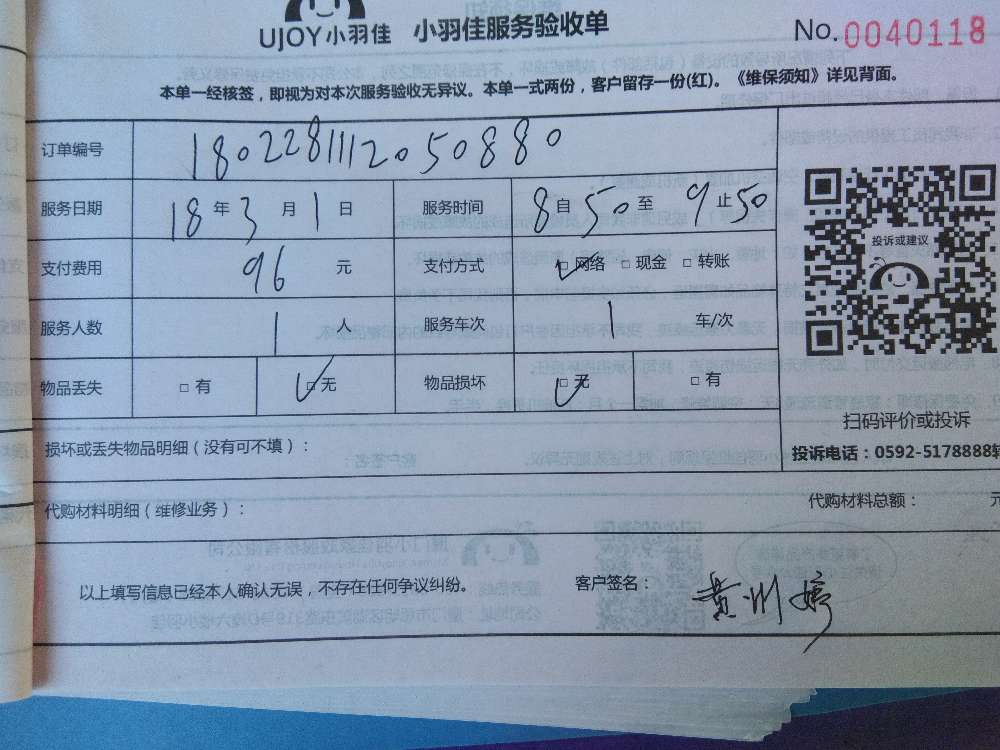 UJOY小羽佳 小羽佳服务验收单 No.0040118
本单一经核签，即视为对本次服务验收无异议。本单一式两份，客户留存一份(红)。《维保须知》详见背面。
订单编号 1802281112050880
服务日期 18年3月1日 服务时间 8自50至9止50
支付费用 96元 支付方式 □网络 □现金 □转账
投诉或建议
服务人数 1人 服务车次 1车/次
物品丢失 □有 □无 物品损坏 □无 □有
扫码评价或投诉
损坏或丢失物品明细（没有可不填）：
投诉电话：0592-5178888转
代购材料明细（维修业务）： 代购材料总额： 元
以上填写信息已经本人确认无误，不存在任何争议纠纷。 客户签名：黄州婷